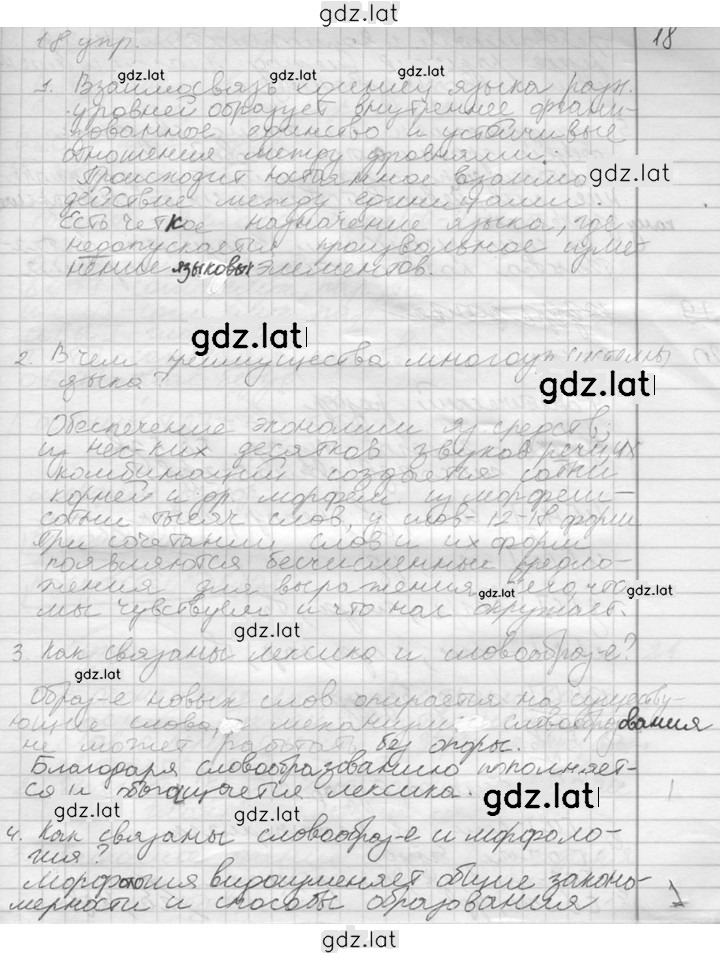 gdz.lat
18 упр. 18
gdz.lat gdz.lat
1. Взаимосвязь единиц языка разн.
уровней образует внутреннее органи-
зованное единство и устойчивые
отношения между уровнями.
gdz.lat
Происходит постоянное взаимо-
действие между единицами.
Есть четкое назначение языка, где
недопускается произвольное изме-
нение языковых элементов.
gdz.lat
2. В чем преимущества многоур. системы
языка?
gdz.lat
Обеспечение экономии яз средств;
из нес-ких десятков звуков речи их
комбинаций создается сотни
корней и др. морфем из морфем -
сотни тысяч слов, у слов - 12-18 форм
При сочетании слов и их форм
появляются бесчисленные предло-
жения для выражения того, что
gdz.lat gdz.lat
мы чувствуем и что нас окружает.
gdz.lat
3 Как связаны лексика и словообраз-е?
gdz.lat
Образ-е новых слов опирается на существу-
ющие слова, а механизм словообразования
не может работать без опоры.
Благодаря словообразованию пополняет-
ся и обогащается лексика.
gdz.lat
gdz.lat gdz.lat
4. Как связаны словообраз-е и морфоло-
гия?
Морфология видоизменяет общие законо-
мерности и способы образования
gdz.lat